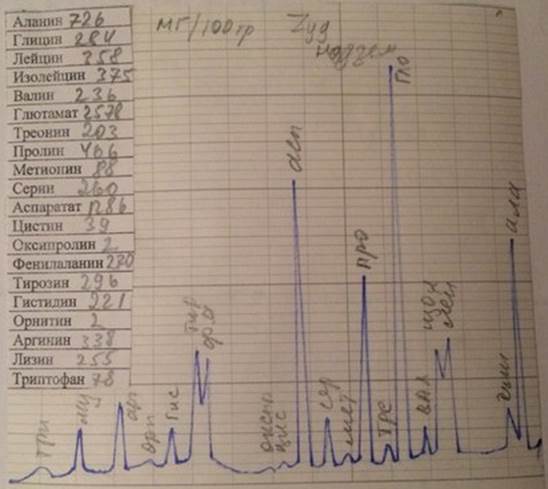 Аланин 726
Глицин 284
Лейцин 358
Изолейцин 375
Валин 236
Глютамат 2578
Треонин 203
Пролин 466
Метионин 88
Серин 260
Аспаратат 1286
Цистин 39
Оксипролин 2
Фенилаланин 230
Тирозин 296
Гистидин 221
Орнитин 2
Аргинин 338
Лизин 255
Триптофан 78
мг/100гр
Зуд
надзем
три
арг
орн
гис
тир
фа
цис
асп
сер
мет
про
тре
глю
вал
лей
глиц
ала